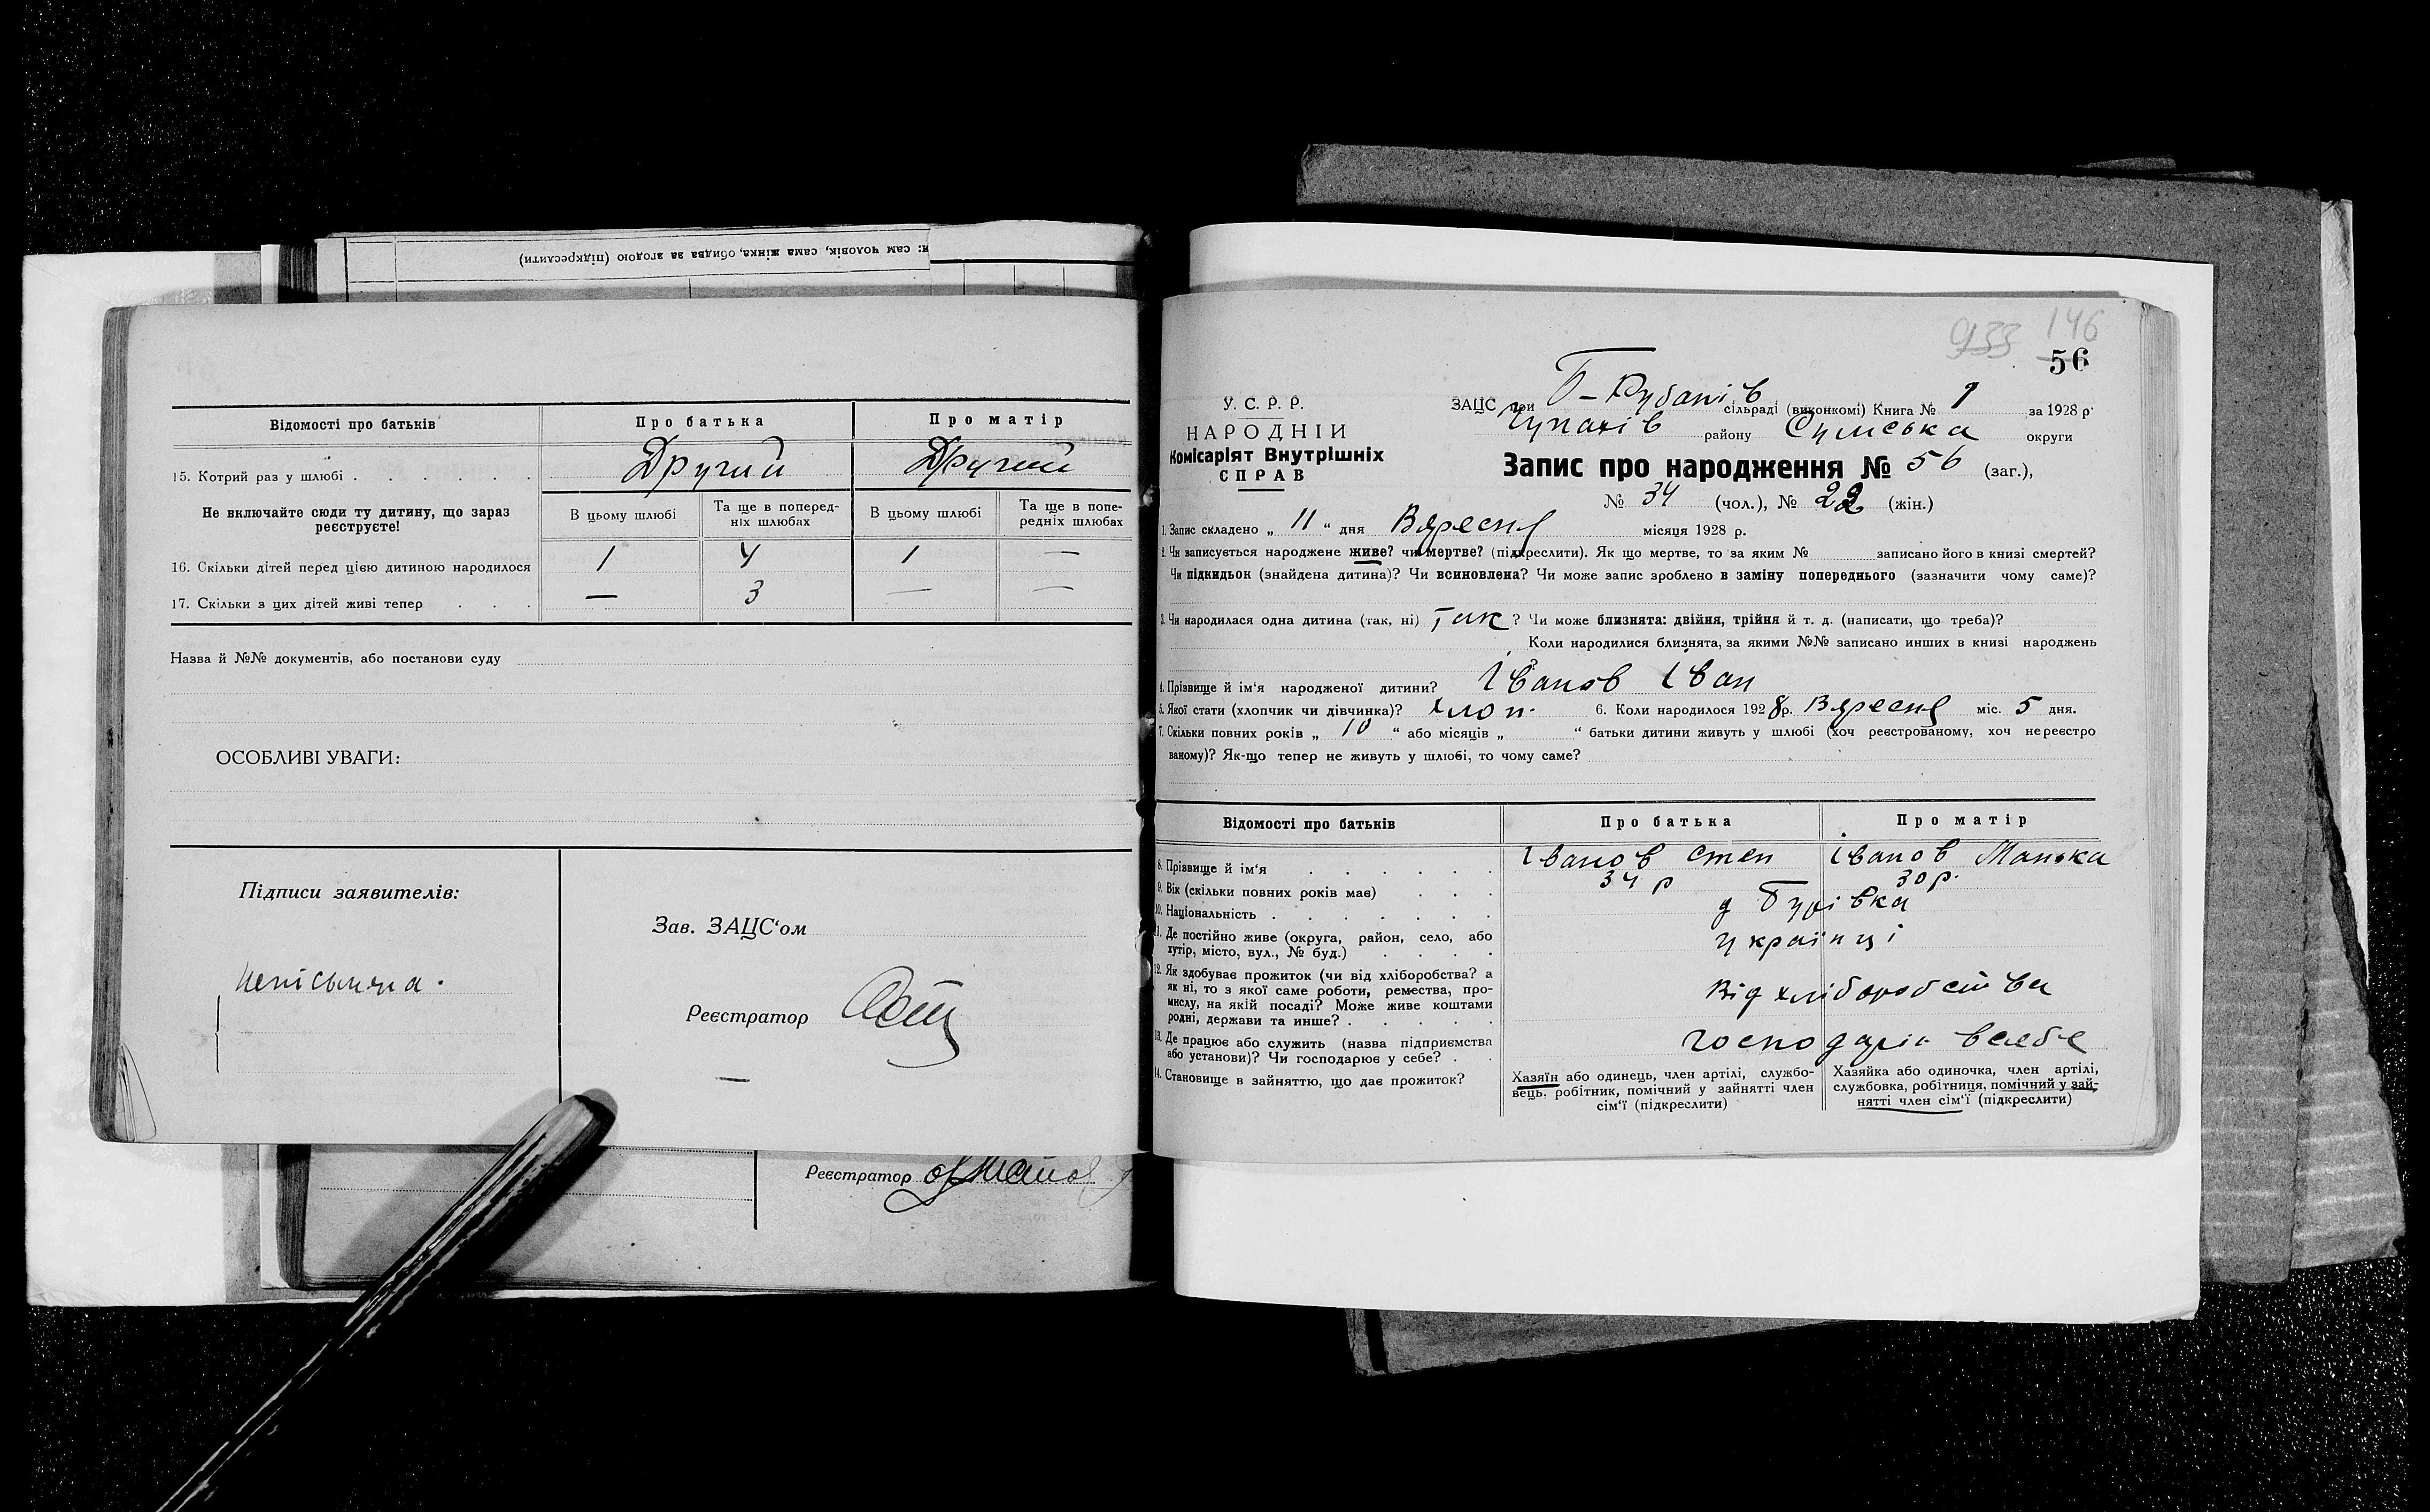 и: сам чоловік, сама жінка, обидва за згодою (підкреслити)
Відомості про батьків
Про батька
Про матір
15. Котрий раз у шлюбі
Другий
Другий
Не включайте сюди ту дитину, що зараз реєструєте!
В цьому шлюбі
Та ще в поперед-
ніх шлюбах
В цьому шлюбі
Та ще в попе-
редніх шлюбах
16. Скільки дітей перед цією дитиною народилося 1 4 1 —
17. Скільки з цих дітей живі тепер . . . — 3 — —
Назва й №№ документів, або постанови суду
ОСОБЛИВІ УВАГИ:
Підписи заявителів:
Зав. ЗАЦС‘ом
Реєстратор
Реєстратор
933 146
56
У. С. Р. Р.
НАРОДНІЙ
Комісаріят Внутрішніх
СПРАВ
ЗАЦС при Б-Рубанів сільраді (виконкомі) Книга № 1 за 1928 р.
Чупахів району Сумська округи
Запис про народження № 56 (заг.),
№ 34 (чол.), № 22 (жін.)
1. Запис складено „ 11 “ дня Вяресня місяця 1928 р.
2. Чи записується народжене живе? чи мертве? (підкреслити). Як що мертве, то за яким № записано його в книзі смертей?
Чи підкидьок (знайдена дитина)? Чи всиновлена? Чи може запис зроблено в заміну попереднього (зазначити чому саме)?
3. Чи народилася одна дитина (так, ні) Так ? Чи може близнята: двійня, трійня й т. д. (написати, що треба)?
Коли народилися близнята, за якими №№ записано инших в книзі народжень
4. Прізвище й ім‘я народженої дитини? Іванов Іван
5. Якої стати (хлопчик чи дівчинка)? хлоп. 6. Коли народилося 1928 р. Вяресня міс. 5 дня.
7. Скільки повних років „ 10 “ або місяців „ “ батьки дитини живуть у шлюбі (хоч реєстрованому, хоч нереєстро
ваному)? Як-що тепер не живуть у шлюбі, то чому саме?
Відомості про батьків
Про батька
Про матір
8. Прізвище й ім‘я . . . . . . Іванов Степ Іванов Манька
9. Вік (скільки повних років має) . . . 34 р 30 р.
10. Національність . . . . . . .
11. Де постійно живе (округа, район, село, або
хутір, місто, вул., № буд.) . . . . українці
12. Як здобуває прожиток (чи від хліборобства? а
як ні, то з якої саме роботи, ремества, про-
мислу, на якій посаді? Може живе коштами
родні, держави та инше? . . . . .
Від хліборобства
13. Де працює або служить (назва підприємства
або установи)? Чи господарює у себе? . .
14. Становище в зайняттю, що дає прожиток?
Хазяїн або одинець, член артілі, службо-
вець, робітник, помічний у зайнятті член
сім‘ї (підкреслити)
Хазяйка або одиночка, член артілі,
службовка, робітниця, помічний у зай-
нятті член сім‘ї (підкреслити)